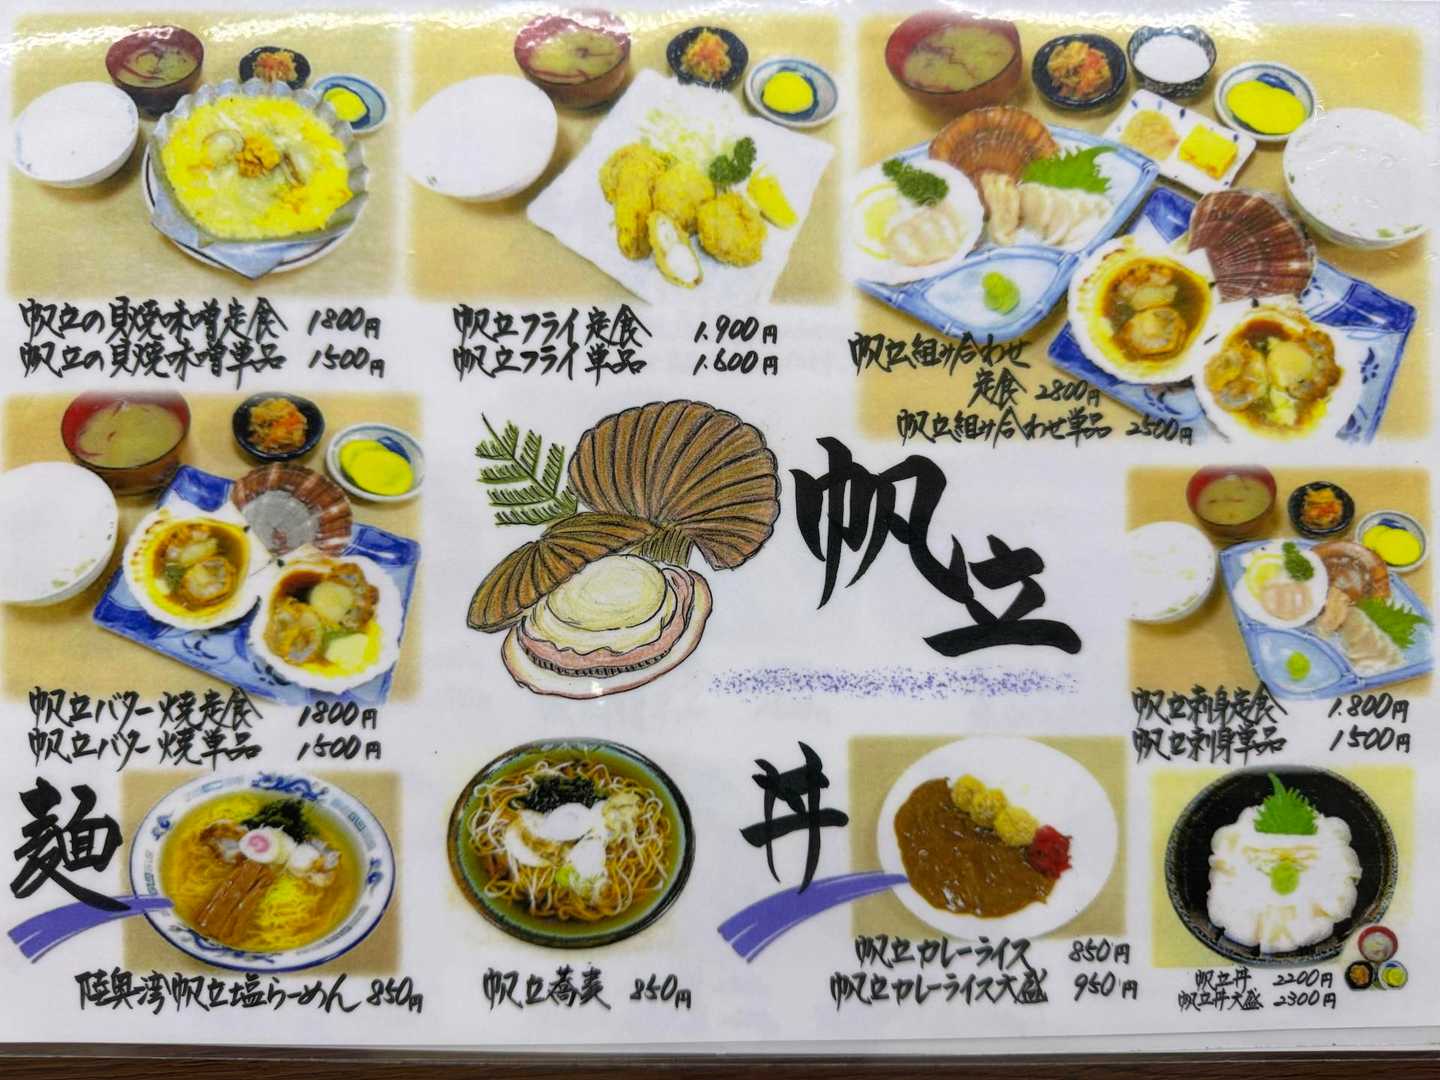 帆立の貝焼味噌定食 1800円
帆立の貝焼味噌単品 1500円
帆立フライ定食 1.900円
帆立フライ単品 1.600円
帆立組み合わせ
定食 2800円
帆立組み合わせ単品 2500円
帆立
帆立バター焼定食 1800円
帆立バター焼単品 1500円
帆立刺身定食 1.800円
帆立刺身単品 1500円
麺
陸奥湾帆立塩らーめん 850円
帆立蕎麦 850円
丼
帆立カレーライス 850円
帆立カレーライス大盛 950円
帆立丼 2200円
帆立丼大盛 2300円